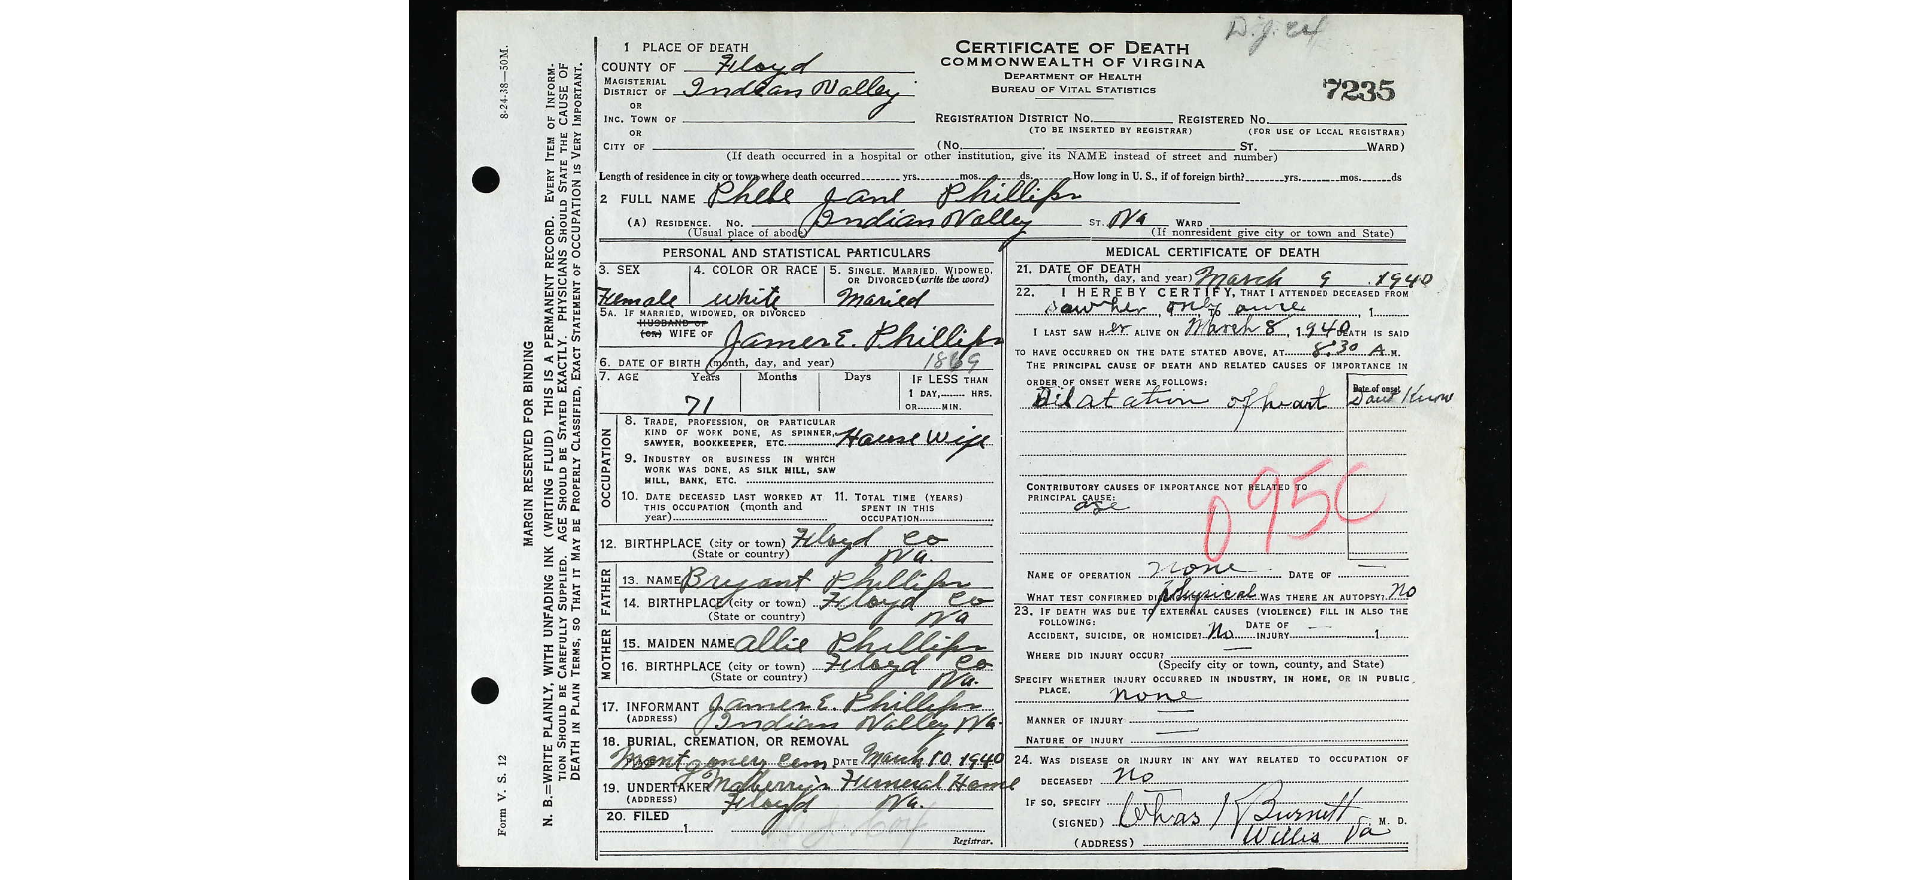 D.J. Cox
CERTIFICATE OF DEATH
COMMONWEALTH OF VIRGINIA
DEPARTMENT OF HEALTH
BUREAU OF VITAL STATISTICS
7235
1 PLACE OF DEATH
COUNTY OF Floyd
MAGISTERIAL DISTRICT OF Indian Valley
OR
INC. TOWN OF
OR
CITY OF
REGISTRATION DISTRICT No. REGISTERED No.
(TO BE INSERTED BY REGISTRAR) (FOR USE OF LOCAL REGISTRAR)
(No. , ST. WARD)
(If death occurred in a hospital or other institution, give its NAME instead of street and number)
Length of residence in city or town where death occurred yrs. mos. ds. How long in U. S., if of foreign birth? yrs. mos. ds
2 FULL NAME Phebe Jane Phillips
(A) RESIDENCE. No. Indian Valley ST. Va WARD
(Usual place of abode) (If nonresident give city or town and State)
PERSONAL AND STATISTICAL PARTICULARS
3. SEX Female
4. COLOR OR RACE white
5. SINGLE, MARRIED, WIDOWED, OR DIVORCED (write the word) Maried
5A. IF MARRIED, WIDOWED, OR DIVORCED
HUSBAND OF
(OR) WIFE OF James E. Phillips
6. DATE OF BIRTH (month, day, and year) 1869
7. AGE Years Months Days IF LESS THAN
1 DAY, HRS.
OR MIN.
71
OCCUPATION
8. TRADE, PROFESSION, OR PARTICULAR
KIND OF WORK DONE, AS SPINNER,
SAWYER, BOOKKEEPER, ETC. House Wife
9. INDUSTRY OR BUSINESS IN WHICH
WORK WAS DONE, AS SILK MILL, SAW
MILL, BANK, ETC.
10. DATE DECEASED LAST WORKED AT
THIS OCCUPATION (month and
year)
11. TOTAL TIME (YEARS)
SPENT IN THIS
OCCUPATION
12. BIRTHPLACE (city or town) Floyd Co
(State or country) Va.
FATHER
13. NAME Bryant Phillips
14. BIRTHPLACE (city or town) Floyd Co
(State or country) Va
MOTHER
15. MAIDEN NAME Allie Phillips
16. BIRTHPLACE (city or town) Floyd Co
(State or country) Va.
17. INFORMANT James E. Phillips
(ADDRESS) Indian Valley Va.
18. BURIAL, CREMATION, OR REMOVAL
Montgomery Cem. DATE March 10, 1940
19. UNDERTAKER Maberry's Funeral Home
(ADDRESS) Floyd Va.
20. FILED
1 D.J. Cox
Registrar.
MEDICAL CERTIFICATE OF DEATH
21. DATE OF DEATH
(month, day, and year) March 9, 1940
22. I HEREBY CERTIFY, THAT I ATTENDED DECEASED FROM
saw her, only once, 1
I LAST SAW HER ALIVE ON March 8, 1940 DEATH IS SAID
TO HAVE OCCURRED ON THE DATE STATED ABOVE, AT 8:30 A.M.
THE PRINCIPAL CAUSE OF DEATH AND RELATED CAUSES OF IMPORTANCE IN
ORDER OF ONSET WERE AS FOLLOWS:
Date of onset
Dilatation of heart Dont Know
CONTRIBUTORY CAUSES OF IMPORTANCE NOT RELATED TO
PRINCIPAL CAUSE:
age
095C
NAME OF OPERATION none DATE OF
WHAT TEST CONFIRMED DIAGNOSIS? Physical WAS THERE AN AUTOPSY? No
23. IF DEATH WAS DUE TO EXTERNAL CAUSES (VIOLENCE) FILL IN ALSO THE
FOLLOWING:
ACCIDENT, SUICIDE, OR HOMICIDE? No DATE OF INJURY 1
WHERE DID INJURY OCCUR?
(Specify city or town, county, and State)
SPECIFY WHETHER INJURY OCCURRED IN INDUSTRY, IN HOME, OR IN PUBLIC
PLACE. none
MANNER OF INJURY
NATURE OF INJURY
24. WAS DISEASE OR INJURY IN ANY WAY RELATED TO OCCUPATION OF
DECEASED? No
IF SO, SPECIFY
(SIGNED) Chas K Burnett M. D.
(ADDRESS) Willis Va
8-24-38—50M.
MARGIN RESERVED FOR BINDING
N. B.—WRITE PLAINLY, WITH UNFADING INK (WRITING FLUID) THIS IS A PERMANENT RECORD. EVERY ITEM OF INFORM-
TION SHOULD BE CAREFULLY SUPPLIED. AGE SHOULD BE STATED EXACTLY. PHYSICIANS SHOULD STATE THE CAUSE OF
DEATH IN PLAIN TERMS, SO THAT IT MAY BE PROPERLY CLASSIFIED, EXACT STATEMENT OF OCCUPATION IS VERY IMPORTANT.
Form V. S. 12